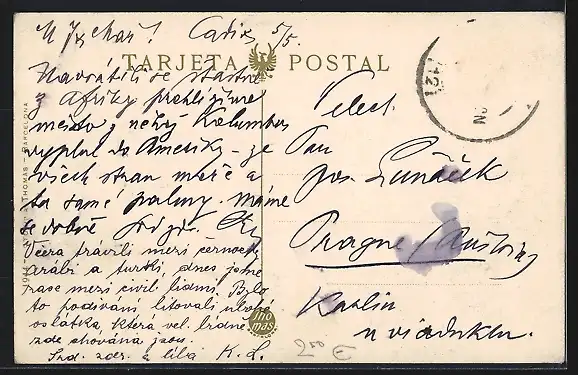 Cadix 5/5.
TARJETA POSTAL
Navrátili se šťastně
z Afriky prohlížíme
město, z něhož Kolumbus
vyplul do Ameriky - ze
všech stran moře a
ta samé palmy. máme
se dobře
Včera trávili mezi černochy
arábi a turky, dnes jsme
zase mezi civil. lidmi. Bylo
to podívání litovali
oslátka, která vel. hrdně
zde chována jsou.
Srd. zdr. a líbá K. L.
Velect.
Pan
Jos. Luňáček
Prague (Austria)
Karlin
u viaduktu.
THOMAS - BARCELONA
Thomas
250 €